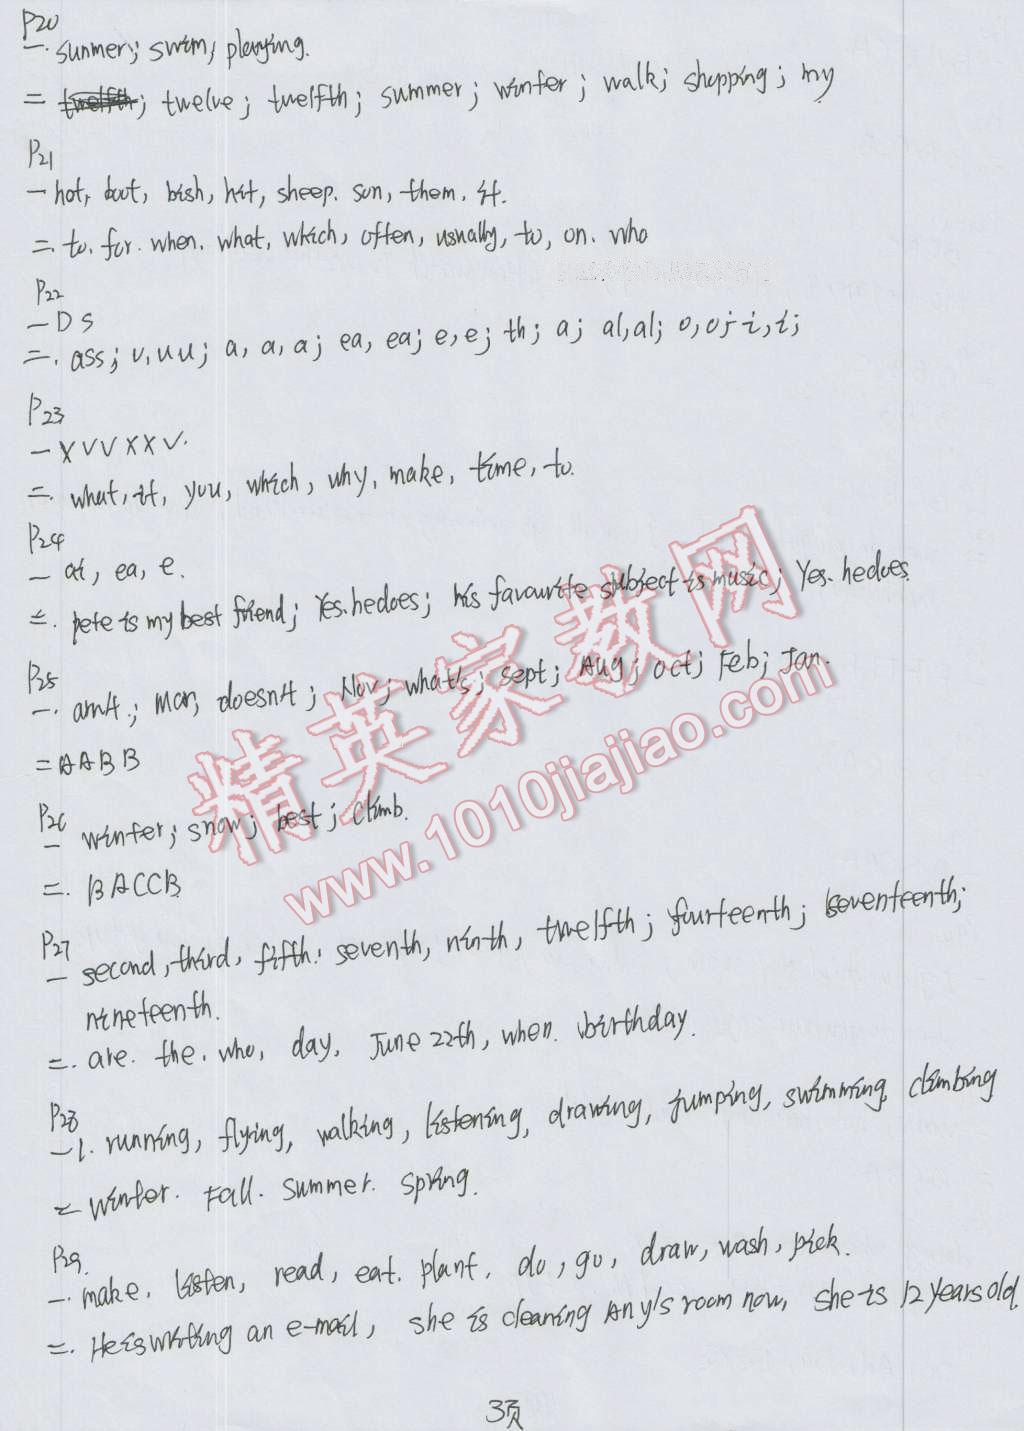 P20
一. sunmer; swim, playing.
二 twelfth; twelve; twelfth; summer; winter; walk; shopping; my
P21
一 hot, but, bish, hit, sheep. son, them. it.
二. to. for. when. what, which, often, usually, to, on. who
P22
一 D S
二. ass; u, uu; a, a, a; ea, ea; e, e; th; a; al, al; o, o; i, i;
P23
一 X V V X X V.
二. what, it, you, which, why, make, time, to.
P24
一 ai, ea, e.
二. pete is my best friend; Yes. he does; his favourite subject is music; Yes. he does.
P25
一. arn't.; Mar, doesn't; Nov; what's; sept; Aug; oct; Feb; Jan.
二 A A B B
P26
一 winter; snow; best; climb.
二. B A C C B
P27
一 second, third, fifth. seventh, ninth, twelfth; fourteenth; seventeenth;
nineteenth.
二. are. the. who, day, June 22th, when. birthday.
P28
一1. running, flying, walking, listening, drawing, jumping, swimming, climbing
二 winter. Fall. summer. spring.
P29.
一. make. listen, read, eat. plant. do, go, draw, wash, pick.
二. He is writing an e-mail, she is cleaning Any's room now, she is 12 years old.
3页
精英家教网
www.1010jiajiao.com